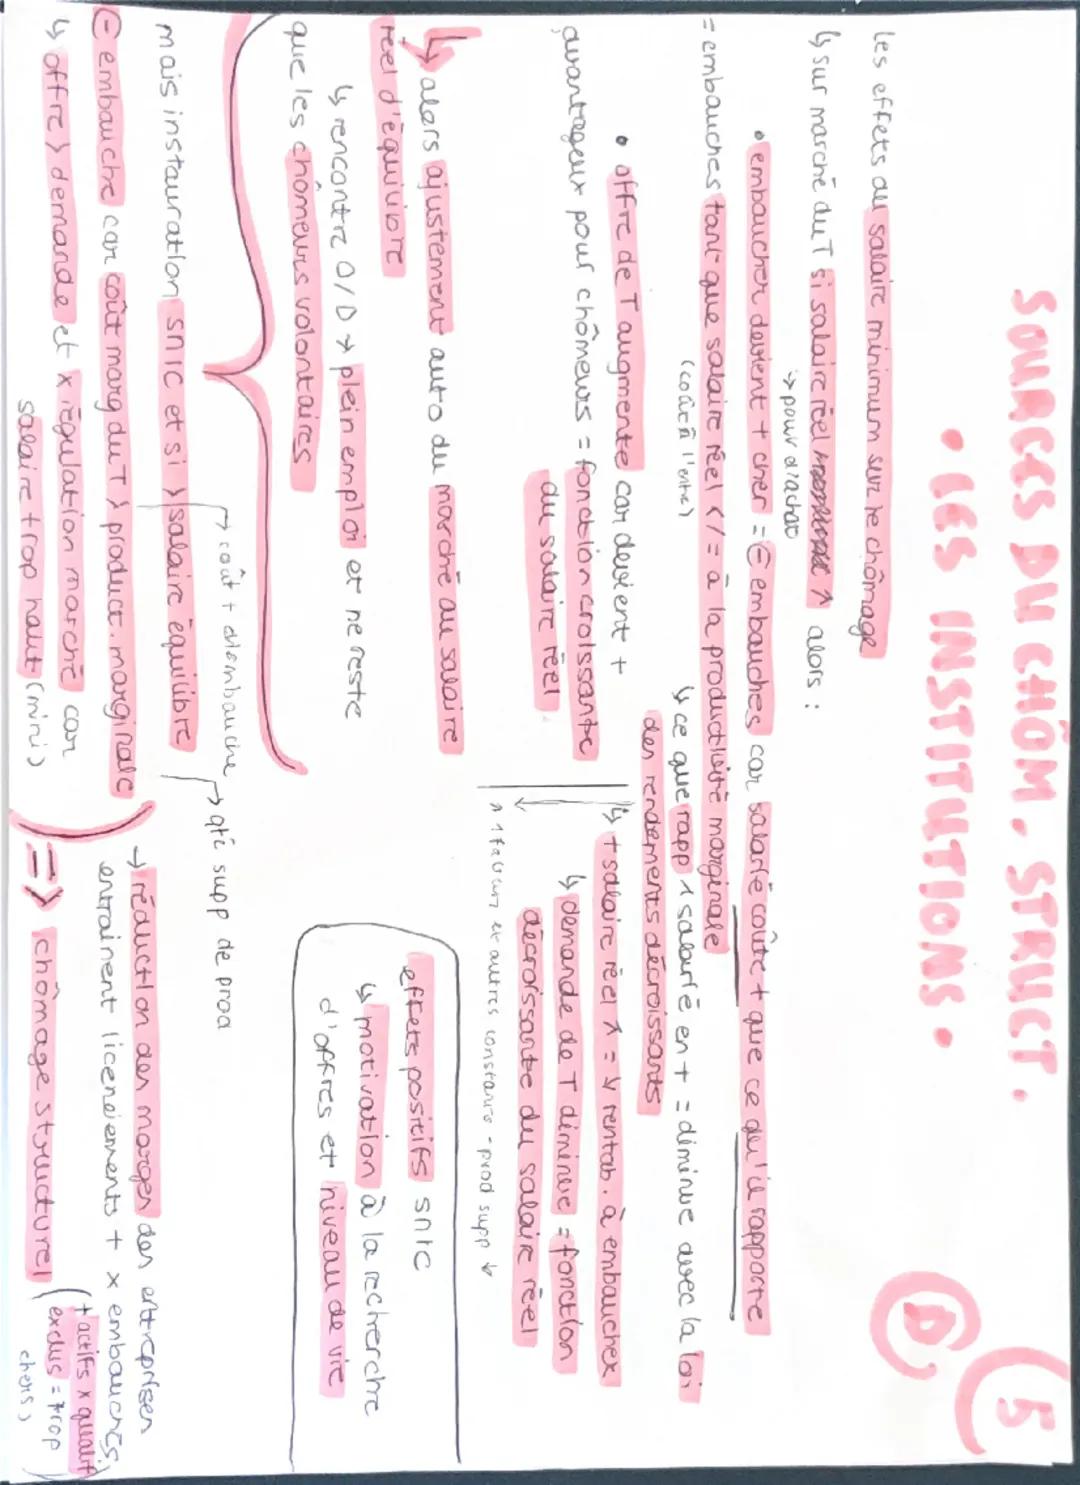 SOURCES DU CHÔM. STRUCT.
• LES INSTITUTIONS •
5
D.
les effets du salaire minimum sur le chômage
↳ sur marché du T si salaire réel ↗ alors :
→ pour d'achat
• embaucher devient + cher = ⊖ embauches car salarié coûte + que ce qu'il rapporte
= embauches tant que salaire réel </= à la productivité marginale
(coût à l'entre)
↳ ce que rapp 1 salarié en + = diminue avec la loi
des rendements décroissants
• offre de T augmente car devient +
avantageux pour chômeurs = fonction croissante
du salaire réel
↳ + salaire réel ↗ = ↓ rentab. à embaucher
↳ demande de T diminue = fonction
décroissante du salaire réel
↗ 1 facteur et autres constants - prod supp ↓
↳ alors ajustement auto du marché au salaire
réel d'équilibre
↳ rencontre O/D → plein emploi et ne reste
que les chômeurs volontaires
effets positifs smic
↳ motivation à la recherche
d'offres et niveau de vie
→ coût + d'embauche
→ qté supp de prod
mais instauration smic et si > salaire équilibre
⊖ embauche car coût marg du T > product. marginale
↳ offre > demande et x régulation marché car
salaire trop haut (mini)
→ réduction des marges des entreprises
entrainent licenciements + x embauches
=> chômage structurel
(+ actifs x qualif
exclus = trop
chers)